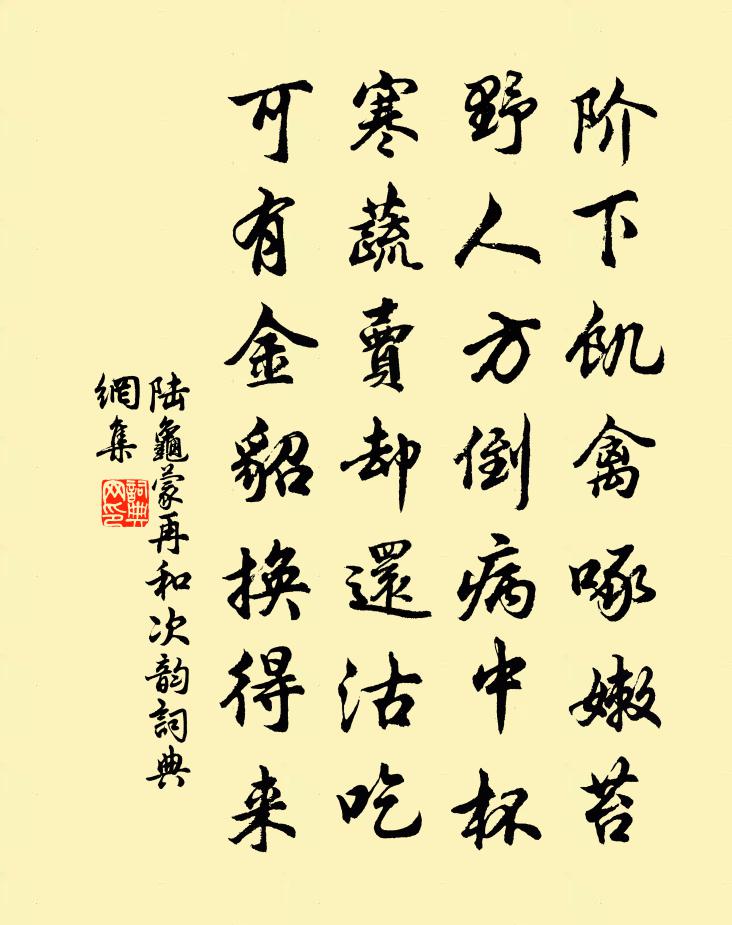 阶下饥禽啄嫩苔
野人方倒病中杯
寒蔬賣却還沽吃
可有金貂换得来
陆龜蒙再和次韵詞典
網集
詞典
网印